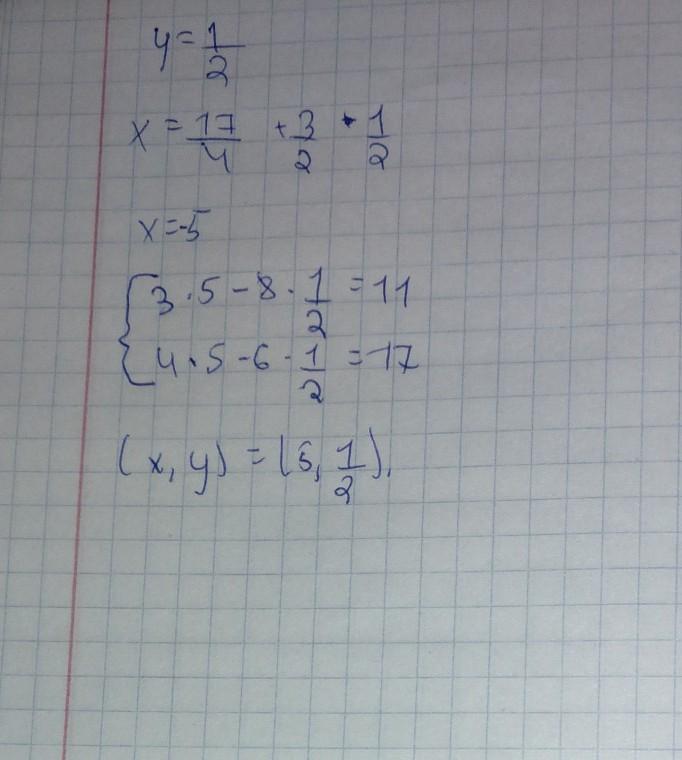 y = 1/2
x = 17/4 + 3/2 · 1/2
x = 5
{ 3 · 5 - 8 · 1/2 = 11
4 · 5 - 6 · 1/2 = 17
(x, y) = (5, 1/2).